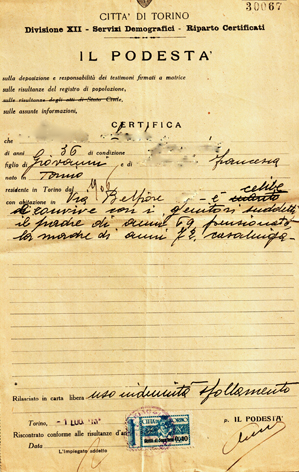 30067
CITTA' DI TORINO
Divisione XII - Servizi Demografici - Riparto Certificati
IL PODESTA'
sulla deposizione e responsabilità dei testimoni firmati a matrice
sulle risultanze del registro di popolazione,
sulle risultanze degli atti di Stato Civile,
sulle assunte informazioni,
CERTIFICA
che
di anni 36 di condizione
figlio di Giovanni e di Francesca
nato in Torino
residente in Torino dal celibe
con abitazione in Via Belfiore è
e convive con i genitori suddetti
il padre di anni 69 pensionato
la madre di anni 72 casalinga
Rilasciato in carta libera uso indennità sfollamento
Torino, p. IL PODESTA'
Riscontrato conforme alle risultanze d'
Data
L'impiegato addetto